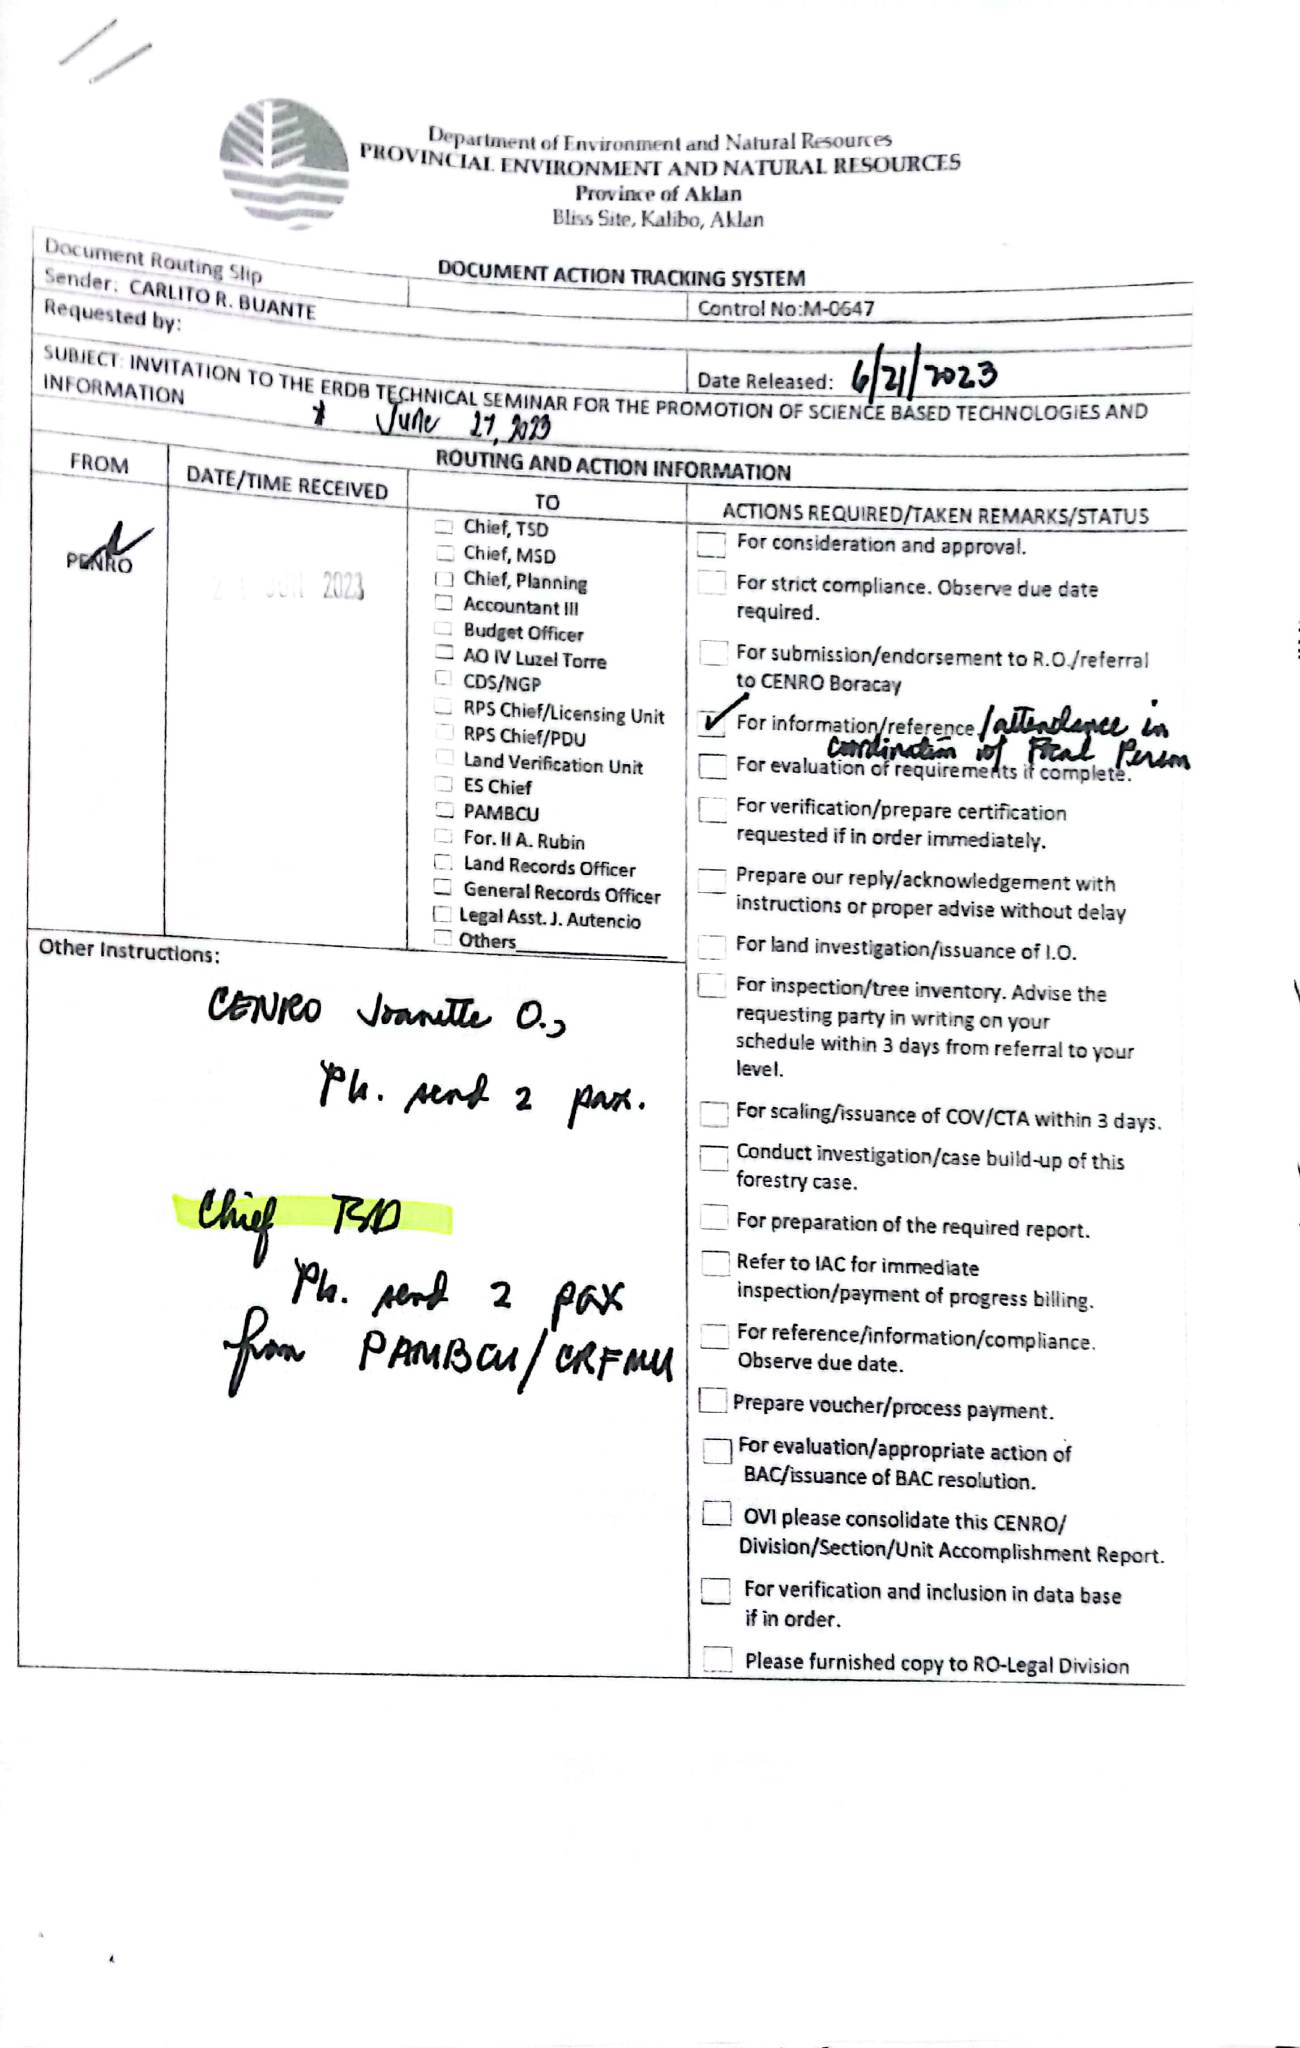 Department of Environment and Natural Resources
PROVINCIAL ENVIRONMENT AND NATURAL RESOURCES
Province of Aklan
Bliss Site, Kalibo, Aklan
DOCUMENT ACTION TRACKING SYSTEM
Document Routing Slip
Sender: CARLITO R. BUANTE
Control No:M-0647
Requested by:
Date Released: 6/21/2023
SUBJECT: INVITATION TO THE ERDB TECHNICAL SEMINAR FOR THE PROMOTION OF SCIENCE BASED TECHNOLOGIES AND
INFORMATION
* June 27, 2023
ROUTING AND ACTION INFORMATION
FROM
DATE/TIME RECEIVED
TO
ACTIONS REQUIRED/TAKEN REMARKS/STATUS
PENRO
JUN 2023
Chief, TSD
Chief, MSD
Chief, Planning
Accountant III
Budget Officer
AO IV Luzel Torre
CDS/NGP
RPS Chief/Licensing Unit
RPS Chief/PDU
Land Verification Unit
ES Chief
PAMBCU
For. II A. Rubin
Land Records Officer
General Records Officer
Legal Asst. J. Autencio
Others
For consideration and approval.
For strict compliance. Observe due date
required.
For submission/endorsement to R.O./referral
to CENRO Boracay
For information/reference /attendance in
coordination w/ Focal Person
For evaluation of requirements if complete.
For verification/prepare certification
requested if in order immediately.
Prepare our reply/acknowledgement with
instructions or proper advise without delay
For land investigation/issuance of I.O.
For inspection/tree inventory. Advise the
requesting party in writing on your
schedule within 3 days from referral to your
level.
For scaling/issuance of COV/CTA within 3 days.
Conduct investigation/case build-up of this
forestry case.
For preparation of the required report.
Refer to IAC for immediate
inspection/payment of progress billing.
For reference/information/compliance.
Observe due date.
Prepare voucher/process payment.
For evaluation/appropriate action of
BAC/issuance of BAC resolution.
OVI please consolidate this CENRO/
Division/Section/Unit Accomplishment Report.
For verification and inclusion in data base
if in order.
Please furnished copy to RO-Legal Division
Other Instructions:
CENRO Joanette O.,
Pls. send 2 pax.
Chief TSD
Pls. send 2 pax
from PAMBCU/CRFMU